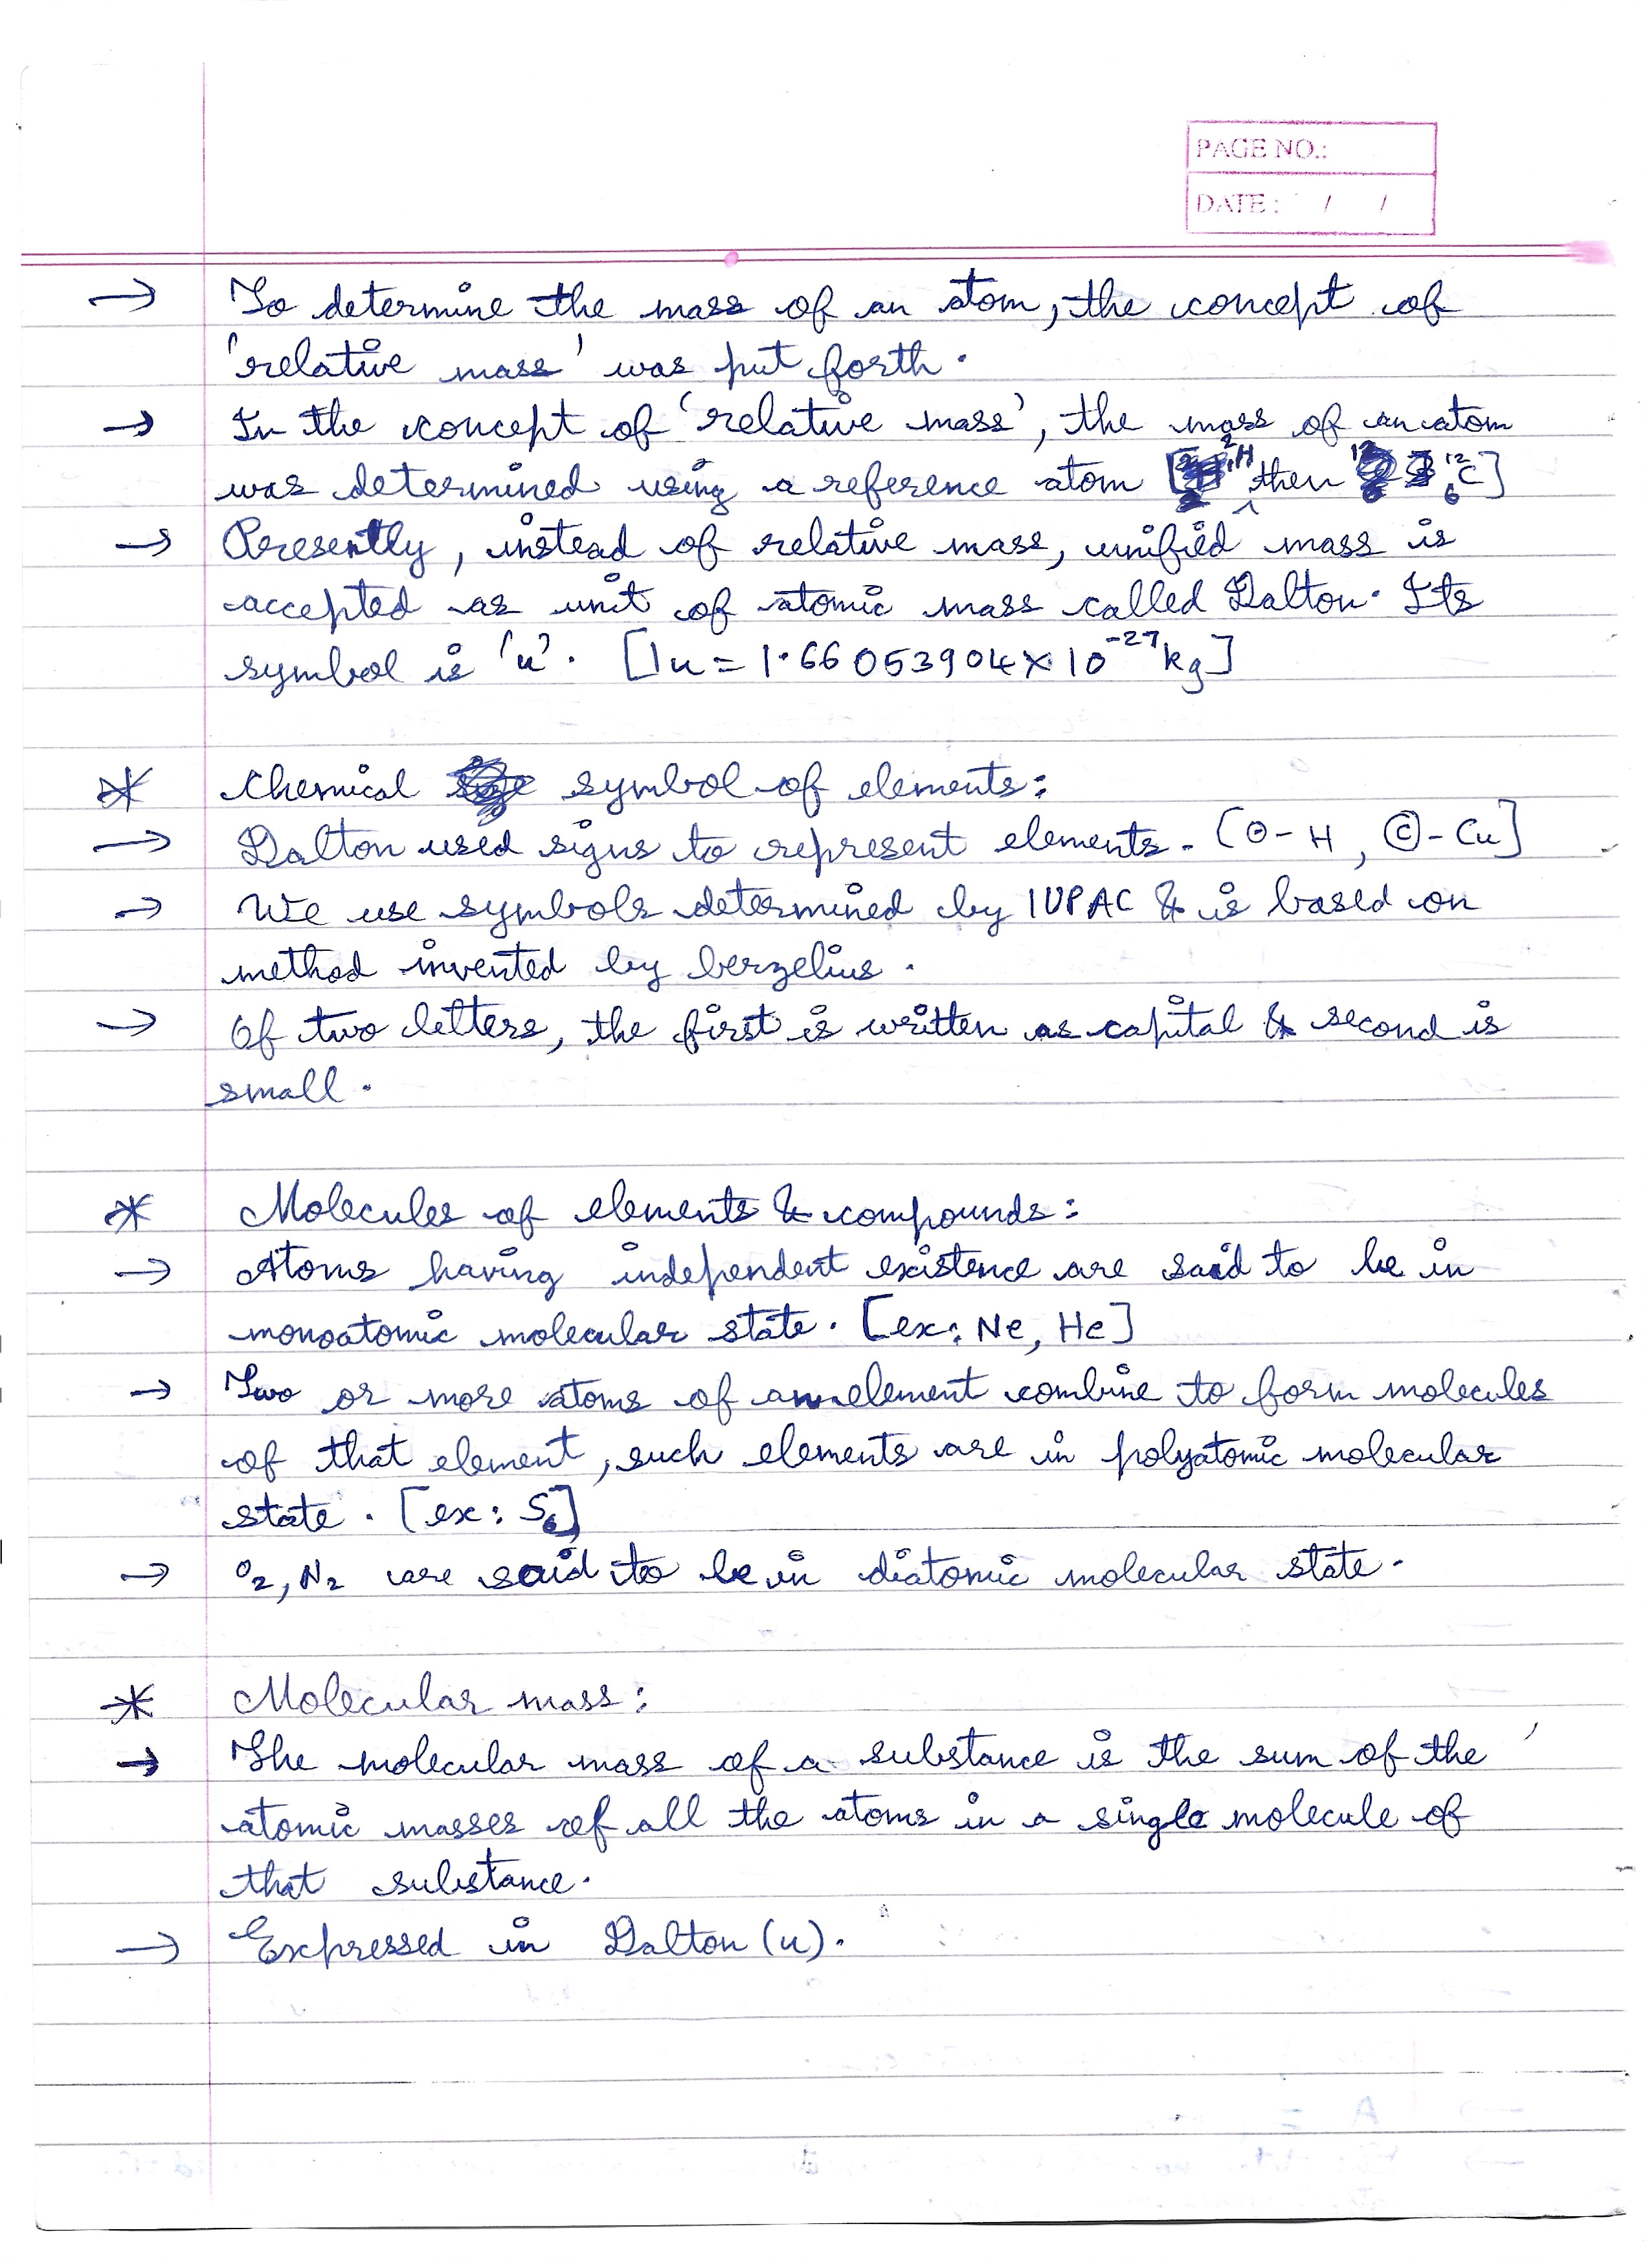 PAGE NO.:
DATE: / /
→ To determine the mass of an atom, the concept of
'relative mass' was put forth.
→ In the concept of 'relative mass', the mass of an atom
was determined using a reference atom [²₁H then ¹²₆C]
→ Presently, instead of relative mass, unified mass is
accepted as unit of atomic mass called Dalton. Its
symbol is 'u'. [1u = 1.66053904 × 10⁻²⁷ kg]
* Chemical symbol of elements:
→ Dalton used signs to represent elements. [⊙ - H, © - Cu]
→ We use symbols determined by IUPAC & is based on
method invented by berzelius.
→ Of two letters, the first is written as capital & second is
small.
* Molecules of elements & compounds:
→ Atoms having independent existence are said to be in
monoatomic molecular state. [ex: Ne, He]
→ Two or more atoms of an element combine to form molecules
of that element, such elements are in polyatomic molecular
state. [ex: S₆]
→ O₂, N₂ are said to be in diatomic molecular state.
* Molecular mass:
→ The molecular mass of a substance is the sum of the
atomic masses of all the atoms in a single molecule of
that substance.
→ Expressed in Dalton (u).